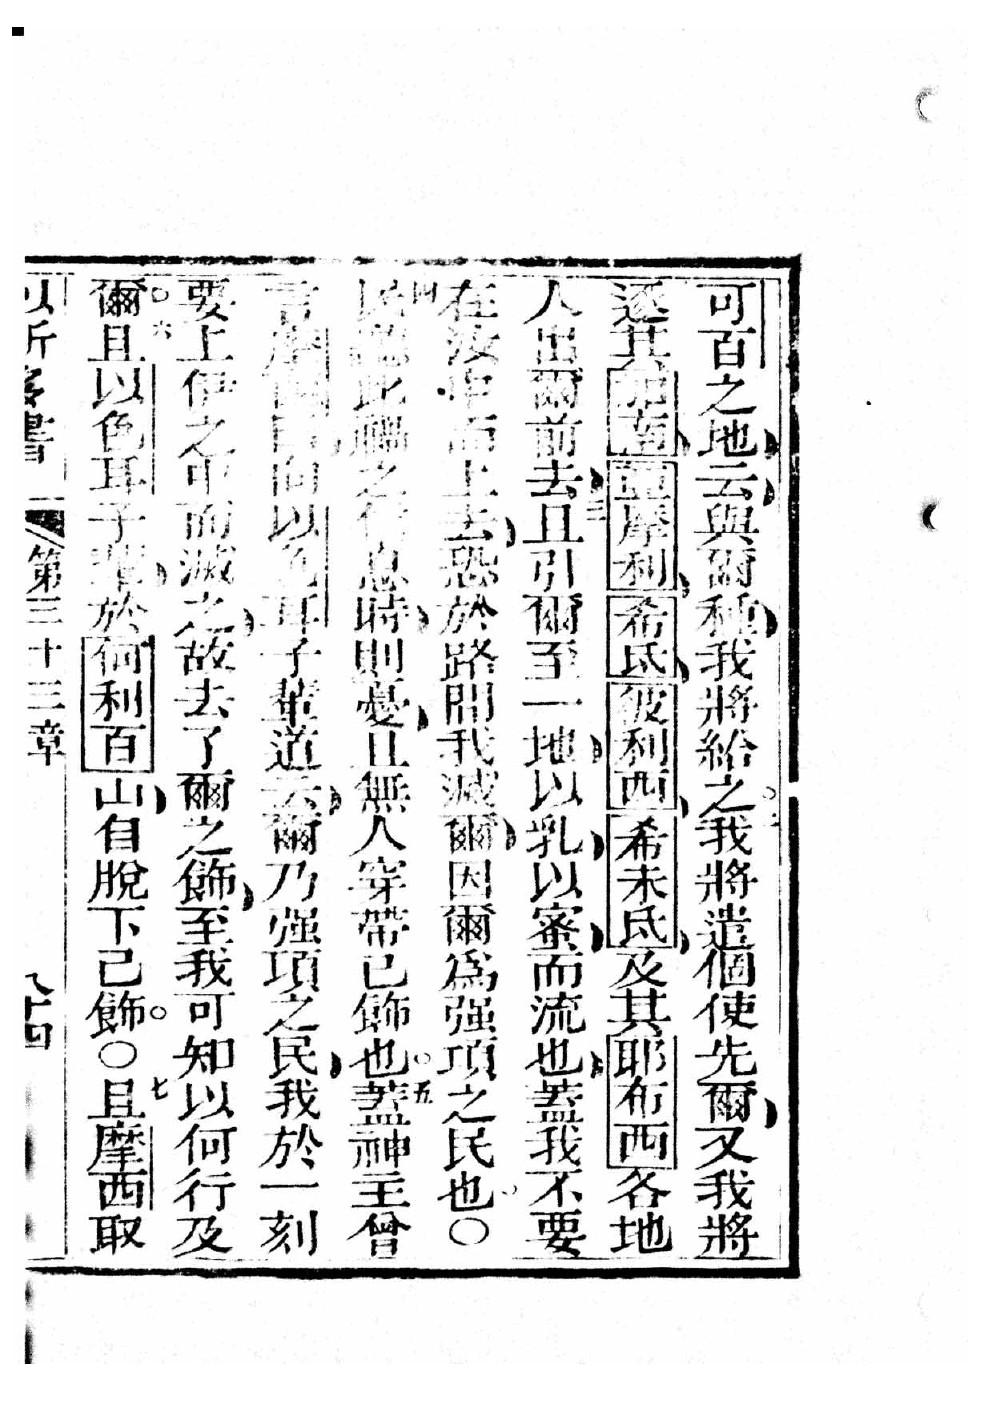 可百之地云與爾種我將給之〇二我將遣個使先爾又我將
逐其加南亞摩利希氐彼利西希未氐及其耶布西各地
人出爾前去三且引爾至一地以乳以蜜而流也蓋我不要
在汝中而上去恐於路間我滅爾因爾為强項之民也〇
四民聽此禍之行息時則憂且無人穿帶己飾也〇五蓋神主曾
言摩西曰向以色耳子輩道云爾乃强項之民我於一刻
要上伊之中而滅之故去了爾之飾至我可知以何行及
爾〇六且以色耳子輩於何利百山自脫下己飾〇七且摩西取
以所多書 第三十三章 八十四